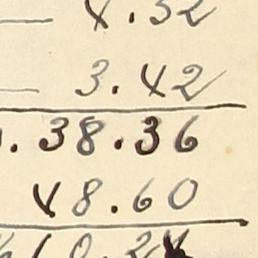 4.32
3.42
.38.36
48.60